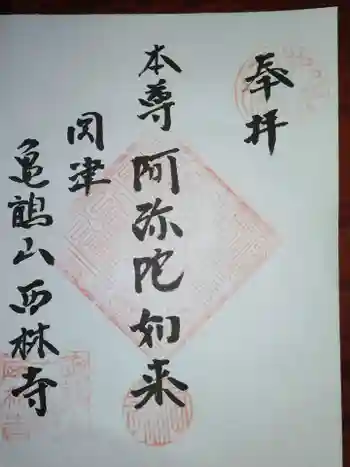 奉拝
本尊 阿弥陀如来
関津
亀鶴山西林寺